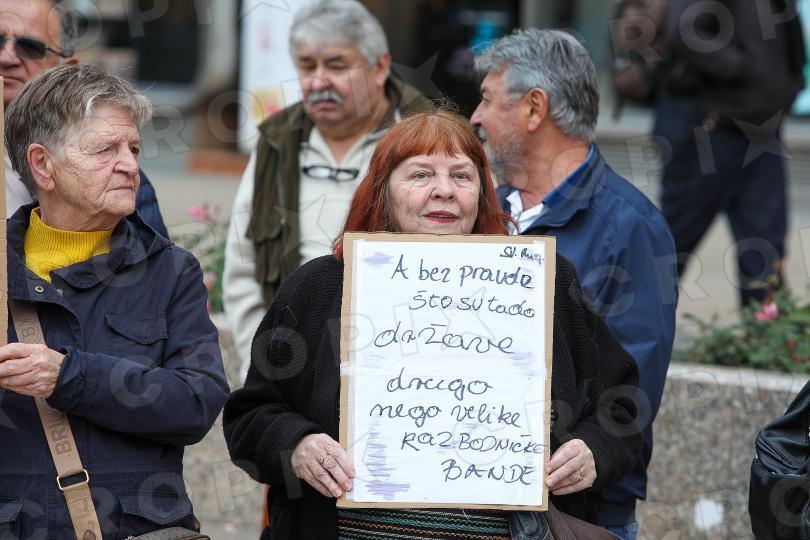 Sv. Aug.
A bez pravde
što su tado
države
drugo
nego velike
RAZBODNIČKE
BANDE
CROPIX